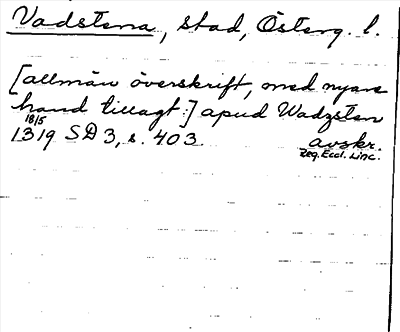 Vadstena, stad, Österg. l.
[allmän överskrift, med nyare
hand tillagt:] apud Wadzsten
18/5
1319 SD 3, s. 403 avskr.
Reg. Eccl. Linc.